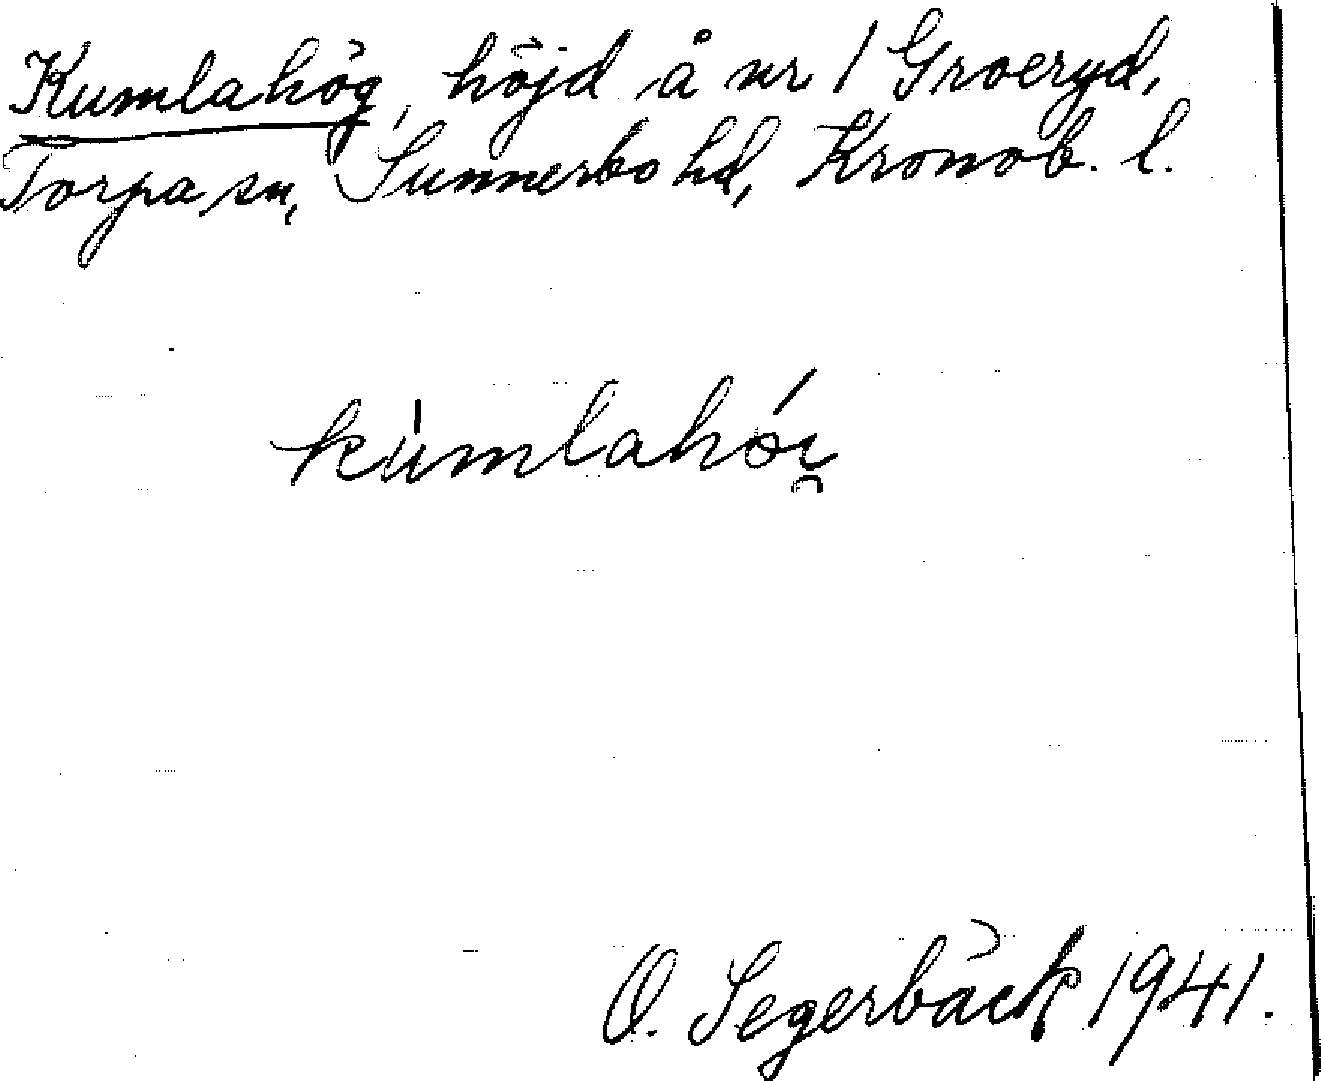 Kumlahög, höjd å nr 1 Groeryd,
Torpa sn, Sunnerbo hd, Kronob. l.
kùmlahói̯
O. Segerbäck 1941.